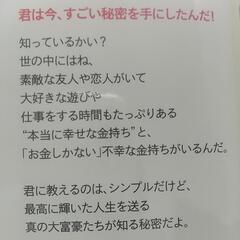 君は今、すごい秘密を手にしたんだ！
知っているかい？
世の中にはね、
素敵な友人や恋人がいて
大好きな遊びや
仕事をする時間もたっぷりある
“本当に幸せな金持ち”と、
「お金しかない」不幸な金持ちがいるんだ。
君に教えるのは、シンプルだけど、
最高に輝いた人生を送る
真の大富豪たちが知る秘密だよ。